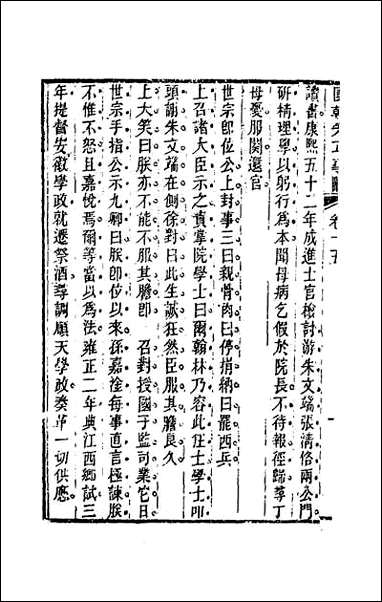 國朝先正事略 卷十五
讀書康熙五十二年成進士官檢討游朱文端張清恪兩公門
研精理學以躬行爲本聞母病乞假於院長不待報徑歸尋丁
母憂服闋還官
世宗即位公上封事三曰親骨肉曰停捐納曰罷西兵
上召諸大臣示之責掌院學士曰爾翰林乃容此狂士學士叩
頭謝朱文端在側徐對曰此生誠狂然臣服其膽良久
上大笑曰朕亦不能不服其膽即 召對授國子監司業它日
世宗手指公示九卿曰朕即位以來孫嘉淦每事直言極諫朕
不惟不怒且嘉悅焉爾等當以爲法雍正二年典江西鄉試三
年提督安徽學政就遷祭酒尋調順天學政奏革一切供應